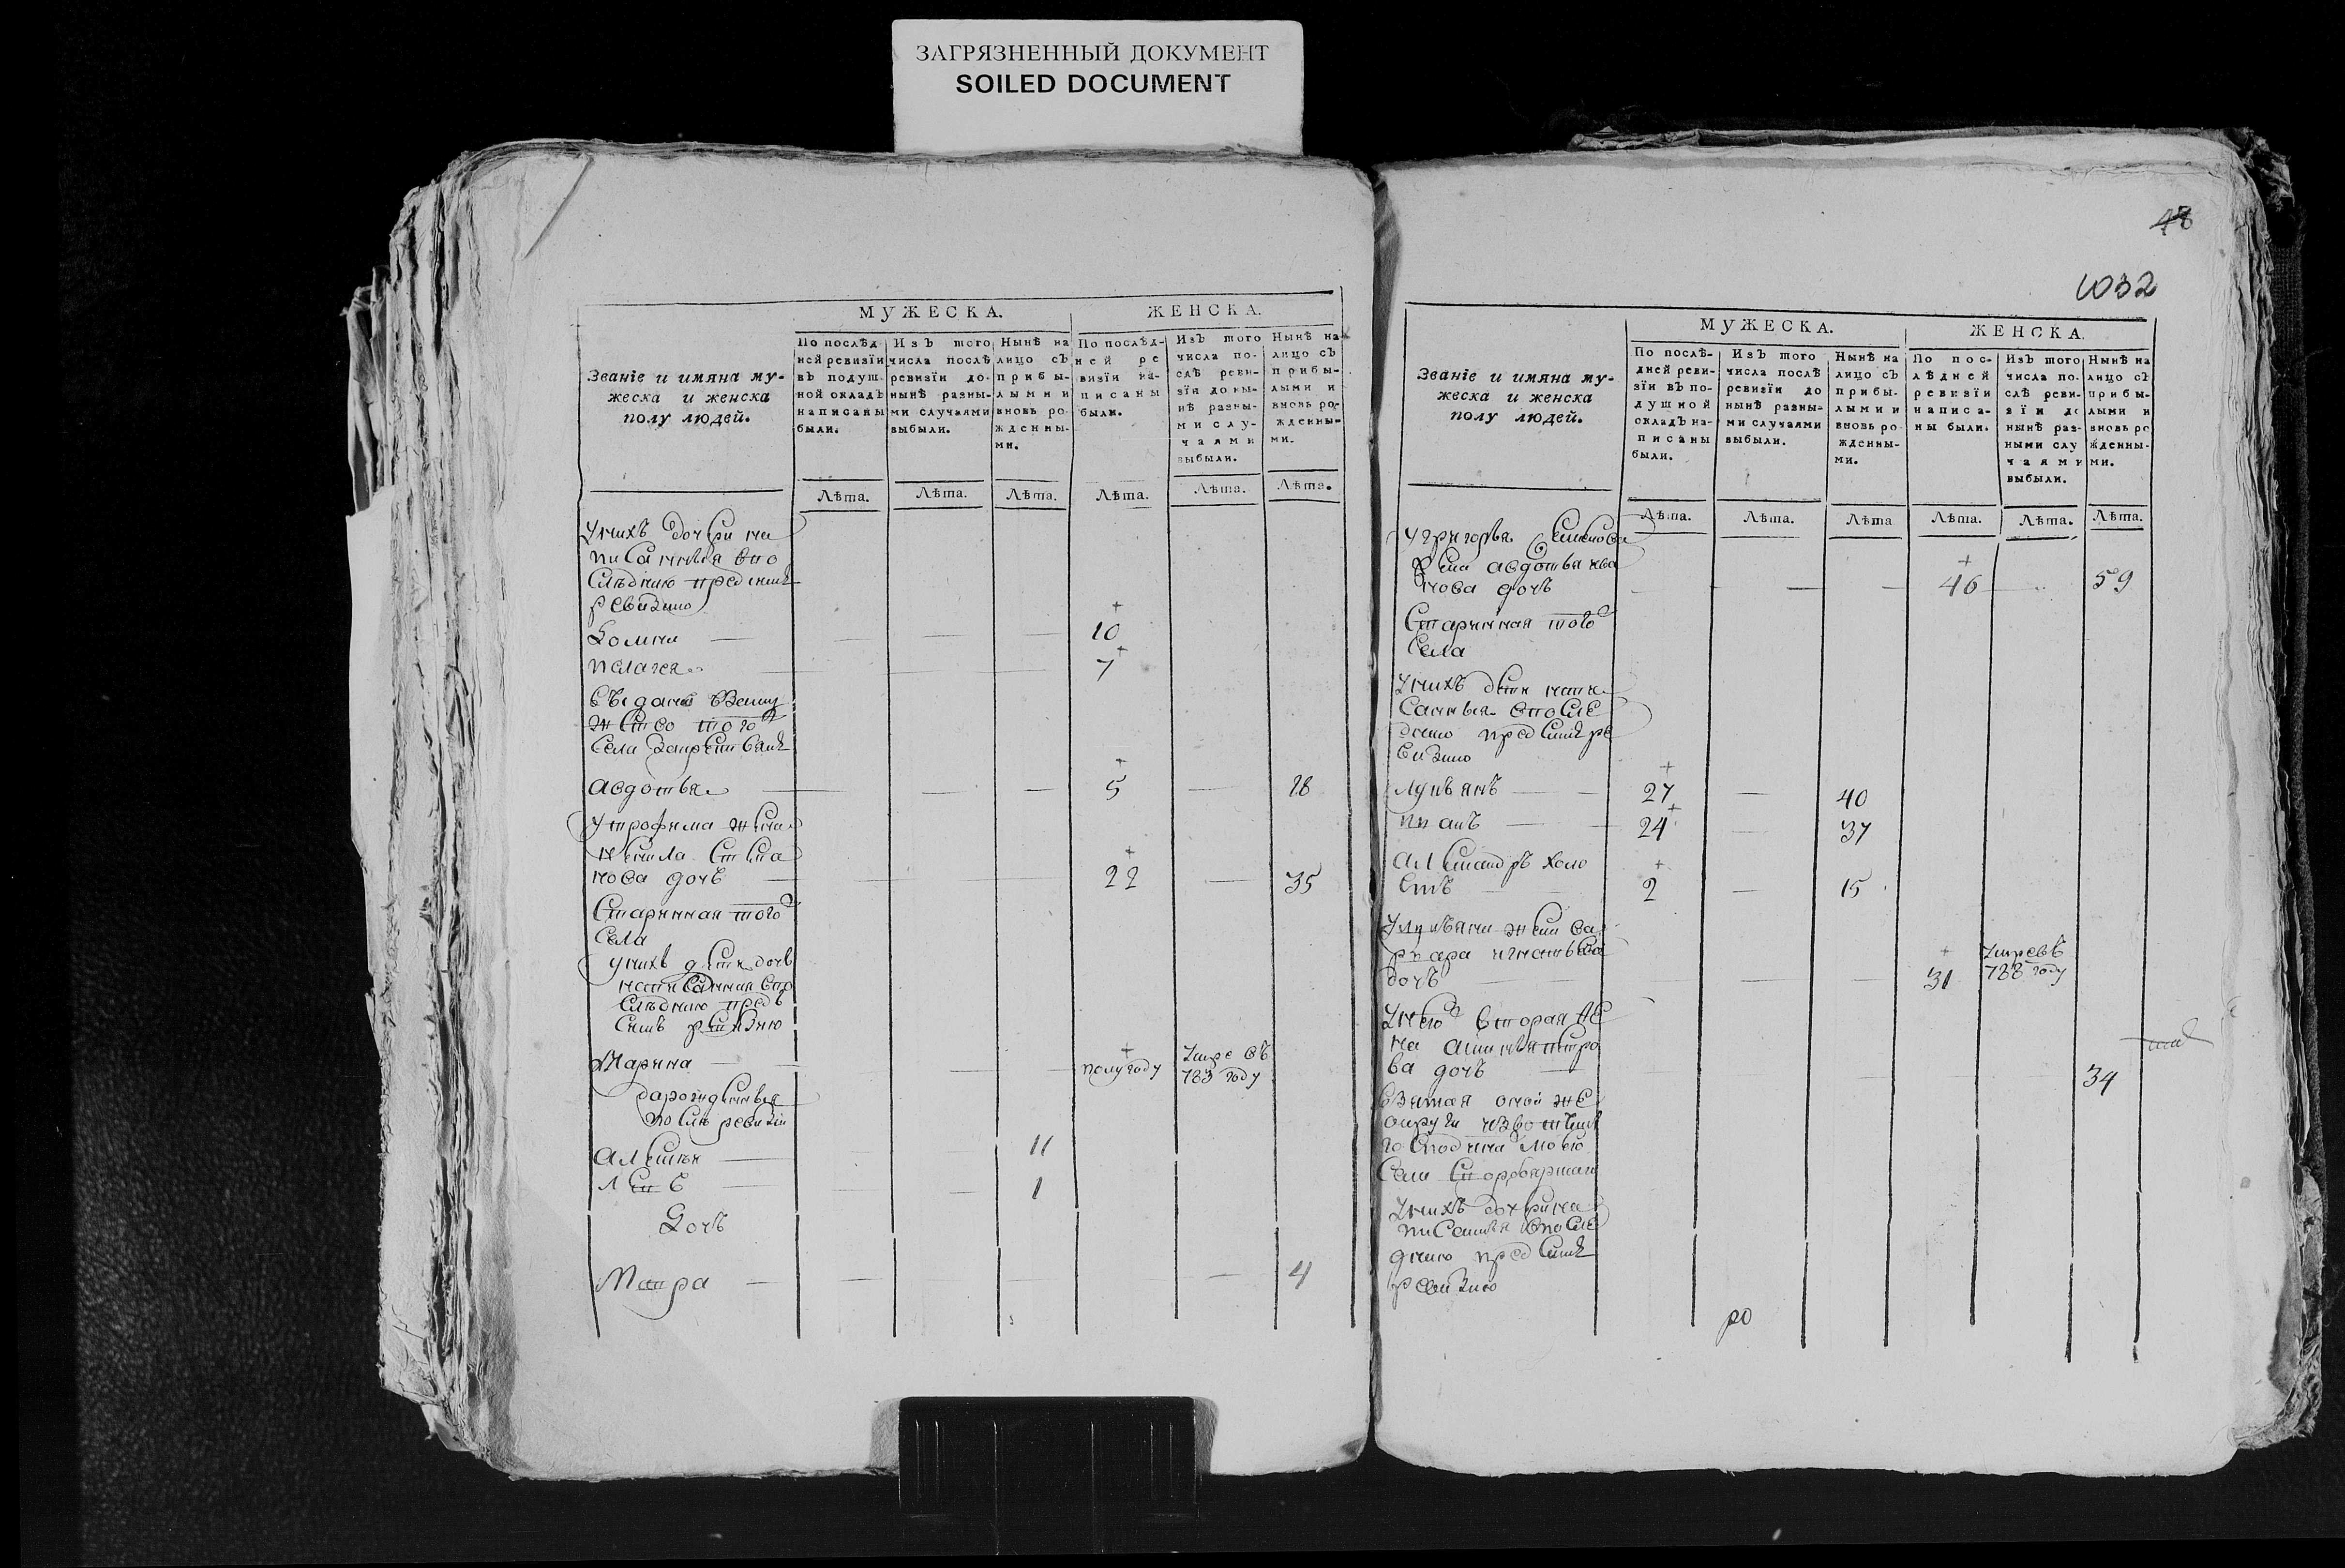 ЗАГРЯЗНЕННЫЙ ДОКУМЕНТ
SOILED DOCUMENT
Званїе и имяна му-
жеска и женска
полу людей.
МУЖЕСКА.
По послѣд
ней ревизїи
въ подуш
ной окладъ
написаны
были.
Лѣта.
Изъ того
числа послѣ
ревизїи до-
нынѣ разны-
ми случаями
выбыли.
Лѣта.
Нынѣ на
лицо съ
прибы-
лыми и
вновь ро-
жденны-
ми.
Лѣта.
ЖЕНСКА.
По послѣд-
ней ре
визїи на-
писаны
были.
Лѣта.
Изъ того
числа по-
слѣ реви-
зїи до ны-
нѣ разны-
ми слу-
чаями
выбыли.
Лѣта.
Нынѣ на
лицо съ
прибы-
лыми и
вновь ро-
жденны-
ми.
Лѣта.
унихъ дочери на
писанныя впо
слѣднюю пред
ревизию
Домна 10
пелагея 7
выданы взаму
жство того
села
авдотья 5 18
утрофима жена
нова дочь 22 35
Старинная того
села
унихъ дети дочь
написанная впо
слѣднюю предъ
симъ ревизию
Марина полугоду умре въ
783 году
рожденныя
после ревизии
алексеи 11
1
Дочь
Мавра 4
48
1032
Званїе и имяна му-
жеска и женска
полу людей.
МУЖЕСКА.
По послѣ-
дней реви-
зїи въ по-
душной
окладъ на-
писаны
были.
Лѣта.
Изъ того
числа послѣ
ревизїи до
нынѣ разны-
ми случаями
выбыли.
Лѣта.
Нынѣ на
лицо съ
прибы-
лыми и
вновь ро-
жденны-
ми.
Лѣта
ЖЕНСКА.
По пос-
лѣдней
ревизїи
написа-
ны были.
Лѣта.
Изъ того
числа по-
слѣ реви-
зїи до
нынѣ раз-
ными слу
чаями
выбыли.
Лѣта.
Нынѣ на
лицо съ
прибы-
лыми и
вновь ро
жденны-
ми.
Лѣта.
угригорья Семенова
жена авдотья ива
нова дочь 46 59
Старинная того
села
унихъ дети напи
санныя впосле
днюю пред симъ ре
визию
лукьянъ 27 40
24 37
александръ холо
стъ 2 15
улукьяна жена ва
рвара игнатьева
дочь 31 умре въ
788 году
унего вторая же
на петро
ва дочь 34
взятая оной же
округи
господина моего
села
унихъ дочери на
писанныя впосле
днюю пред симъ
ревизию
ро